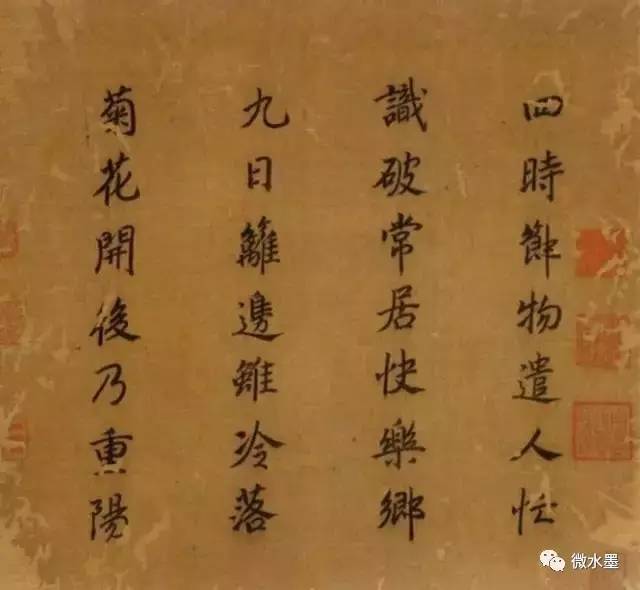 四時節物遣人忙
識破常居快樂鄉
九日籬邊雖冷落
菊花開後乃重陽
微水墨